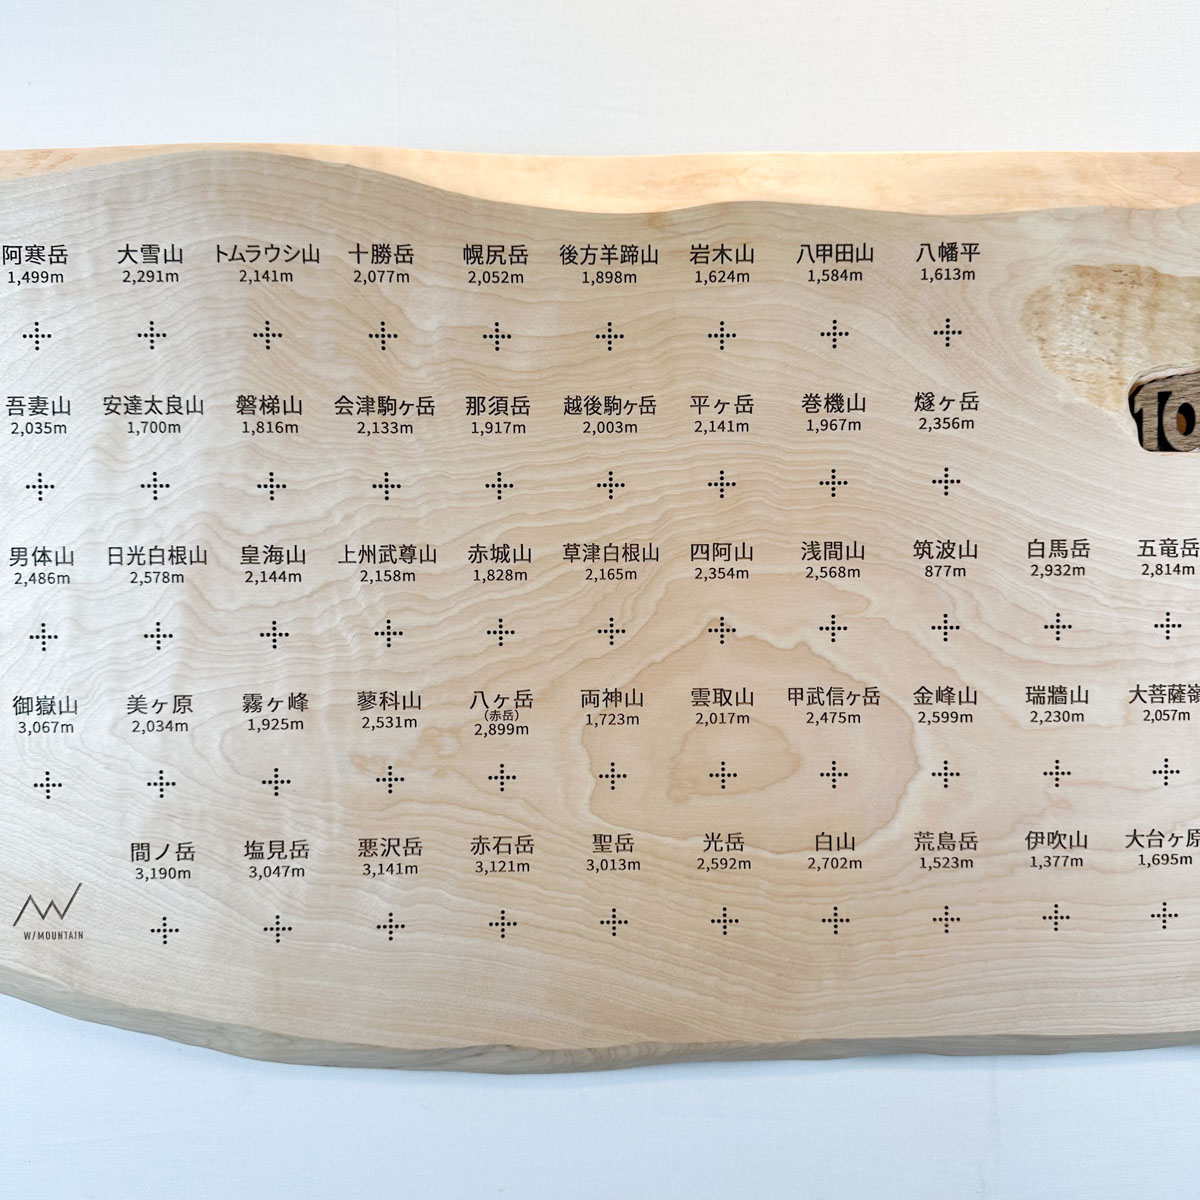 阿寒岳 大雪山 トムラウシ山 十勝岳 幌尻岳 後方羊蹄山 岩木山 八甲田山 八幡平
1,499m 2,291m 2,141m 2,077m 2,052m 1,898m 1,624m 1,584m 1,613m
吾妻山 安達太良山 磐梯山 会津駒ヶ岳 那須岳 越後駒ヶ岳 平ヶ岳 巻機山 燧ヶ岳
2,035m 1,700m 1,816m 2,133m 1,917m 2,003m 2,141m 1,967m 2,356m
10
男体山 日光白根山 皇海山 上州武尊山 赤城山 草津白根山 四阿山 浅間山 筑波山 白馬岳 五竜岳
2,486m 2,578m 2,144m 2,158m 1,828m 2,165m 2,354m 2,568m 877m 2,932m 2,814m
御嶽山 美ヶ原 霧ヶ峰 蓼科山 八ヶ岳 両神山 雲取山 甲武信ヶ岳 金峰山 瑞牆山 大菩薩嶺
(赤岳)
3,067m 2,034m 1,925m 2,531m 2,899m 1,723m 2,017m 2,475m 2,599m 2,230m 2,057m
間ノ岳 塩見岳 悪沢岳 赤石岳 聖岳 光岳 白山 荒島岳 伊吹山 大台ヶ原
3,190m 3,047m 3,141m 3,121m 3,013m 2,592m 2,702m 1,523m 1,377m 1,695m
W/MOUNTAIN